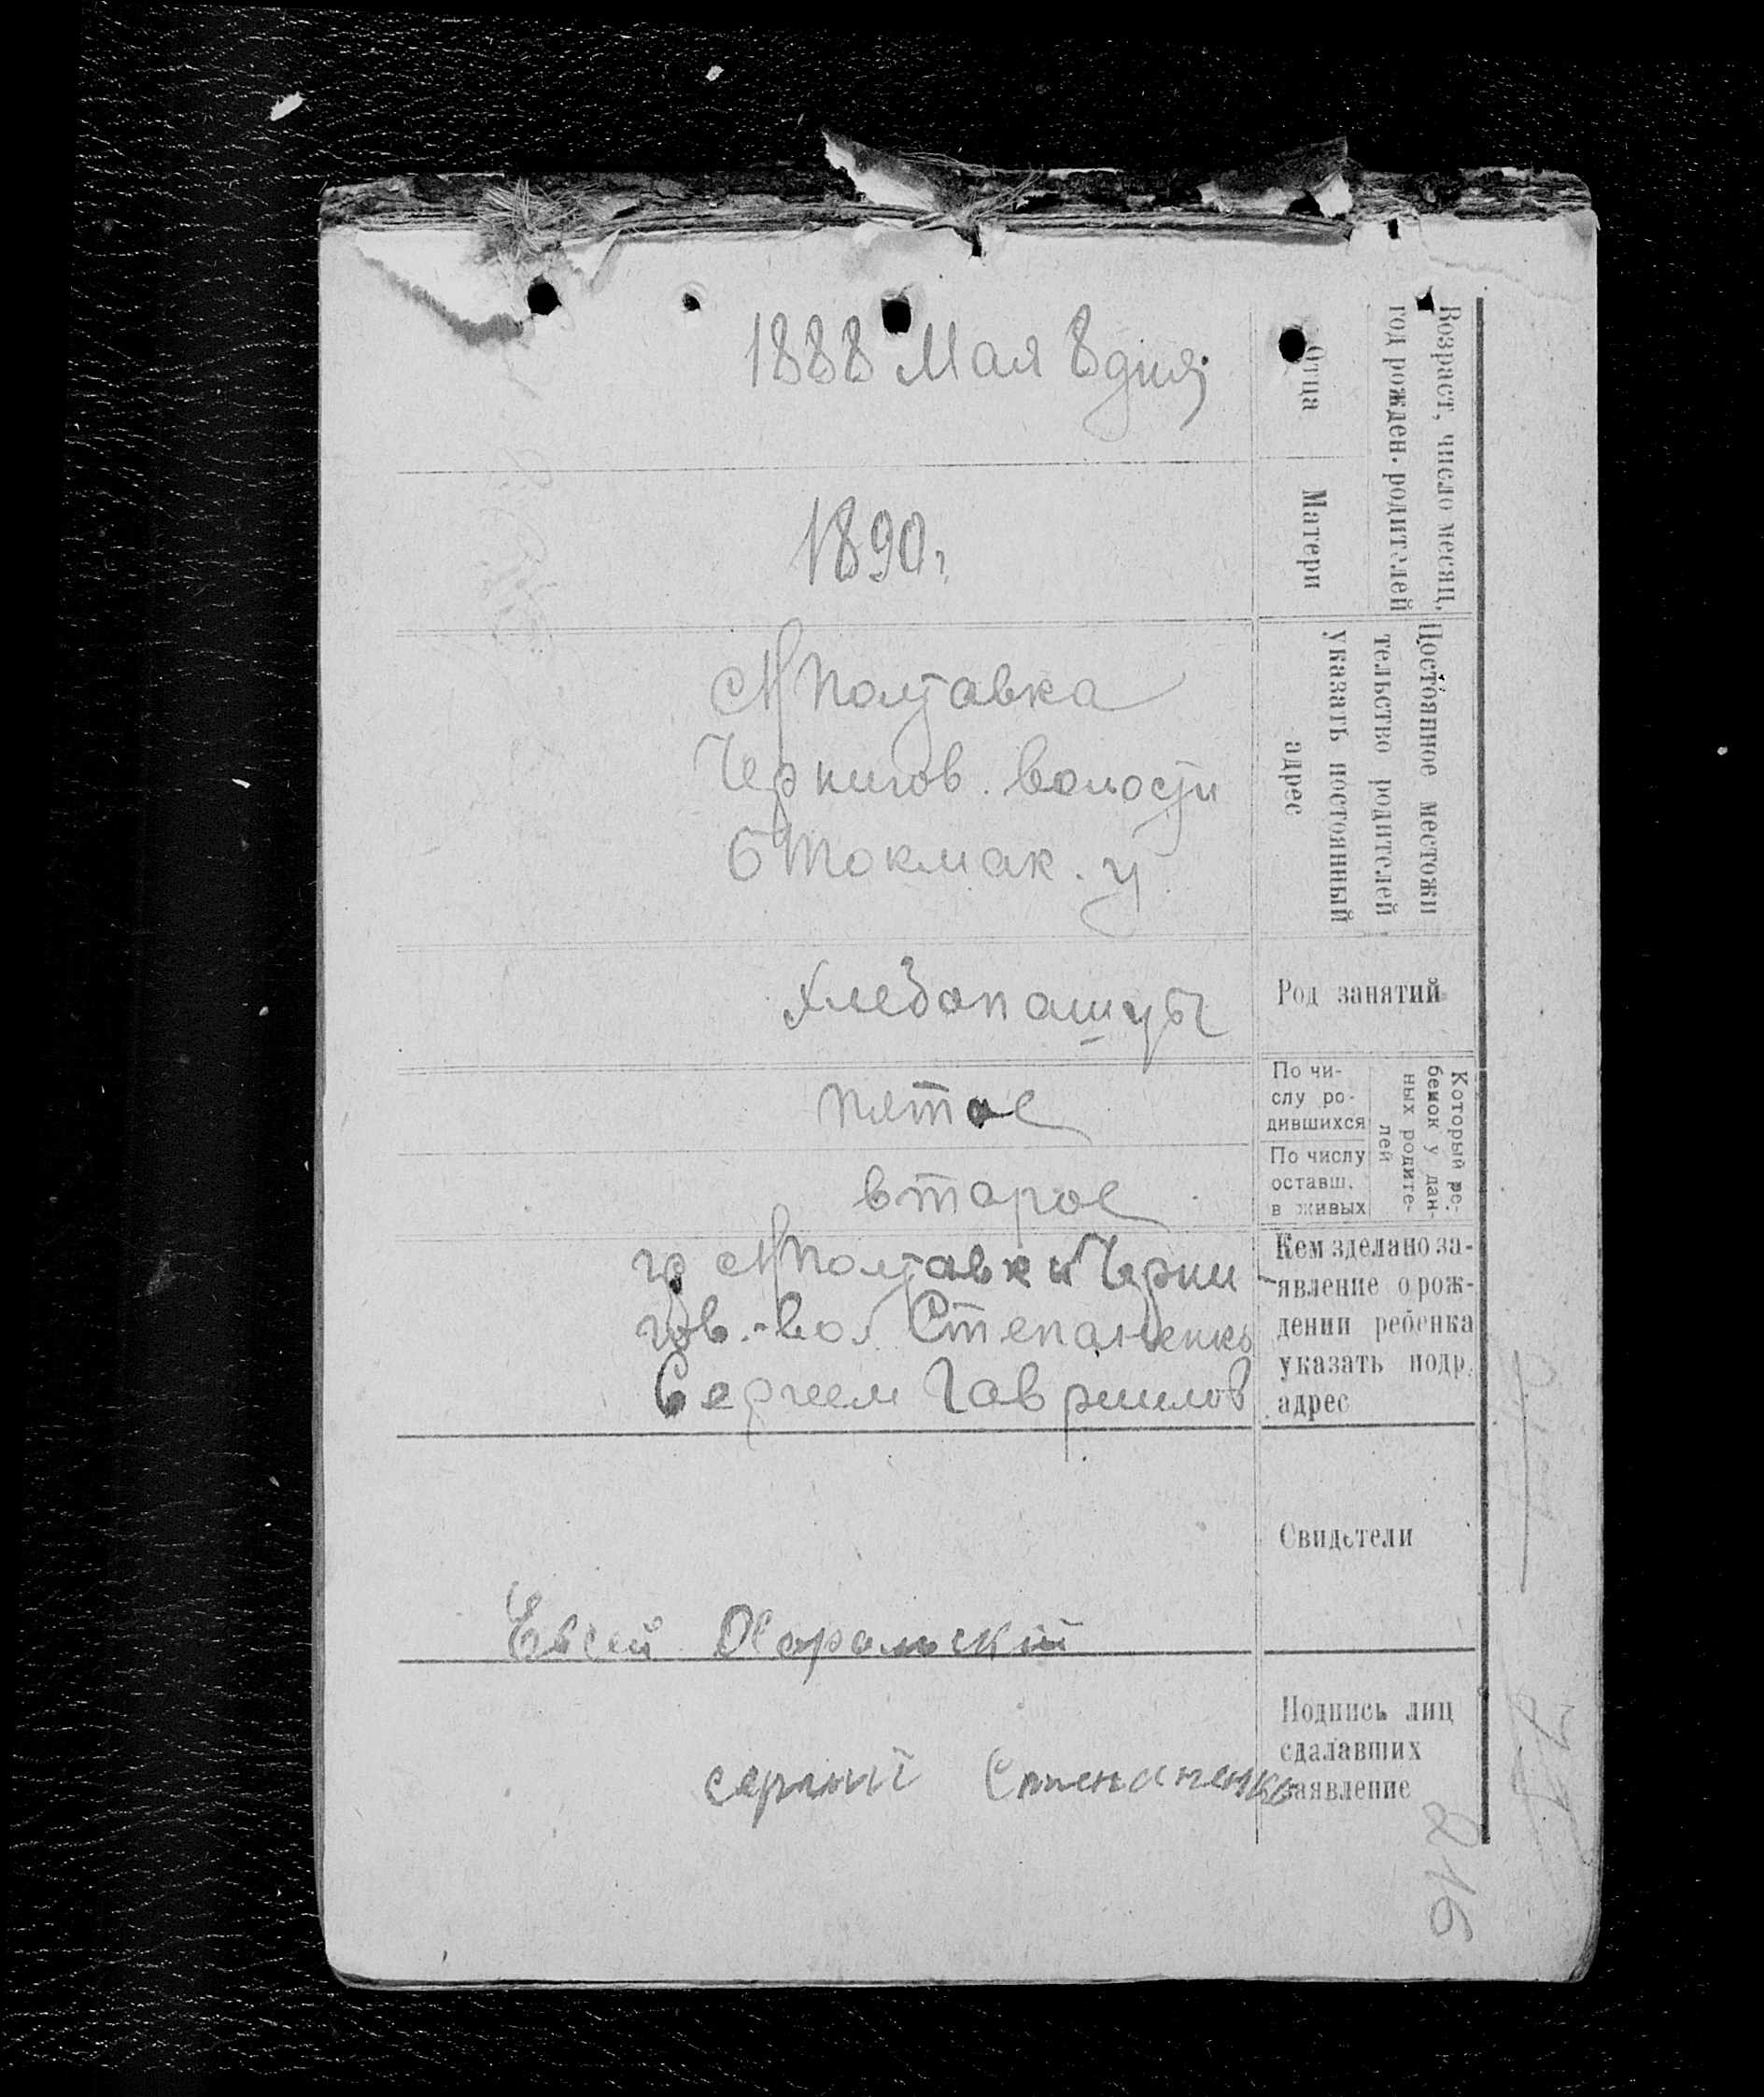 Возраст, число месяц,
год рожден. родителей
Отца
1888 Мая 8 дня
Матери
1890 г
Постоянное местожи
тельство родителей
указать постоянный
адрес
М Полтавка
Чернигов. волости
Б Токмак. у
Род занятий
хлебопашцы
Который ре-
бенок у дан-
ных родите-
лей
По чи-
слу ро-
дившихся
пятое
По числу
оставш.
в живых
второе
Кем зделано за-
явление о рож-
дении ребенка
указать подр.
адрес
гр М Полтавки Черни
гов. вол Степаненко
Сергеем Гаврилов
Свидетели
Евсей
Подпись лиц
сдалавших
заявление
сергий Степаненко
216